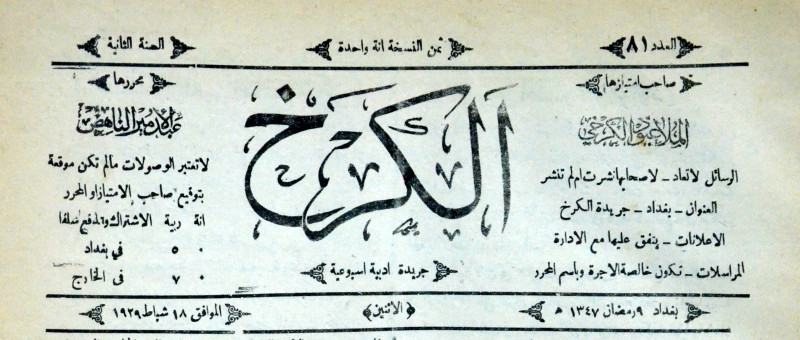 العدد ٨١
ثمن النسخة انة واحدة
السنة الثانية
صاحب امتيازها
الملا عبود الكرخي
الرسائل لا تعاد _ لاصحابها نشرت ام لم تنشر
العنوان _ بغداد _ جريدة الكرخ
الاعلانات _ يتفق عليها مع الادارة
المراسلات _ تكون خالصة الاجرة وباسم المحرر
الكرخ
جريدة ادبية اسبوعية
محررها
عبد الامير الناهض
لا تعتبر الوصولات مالم تكن موقعة
بتوقيع صاحب الامتياز او المحرر
انة ربية الاشتراك وتدفع سلفا
٠ ٥ في بغداد
٠ ٧ في الخارج
بغداد ٩ رمضان ١٣٤٧ هـ
(الأثنين)
الموافق ١٨ شباط ١٩٢٩